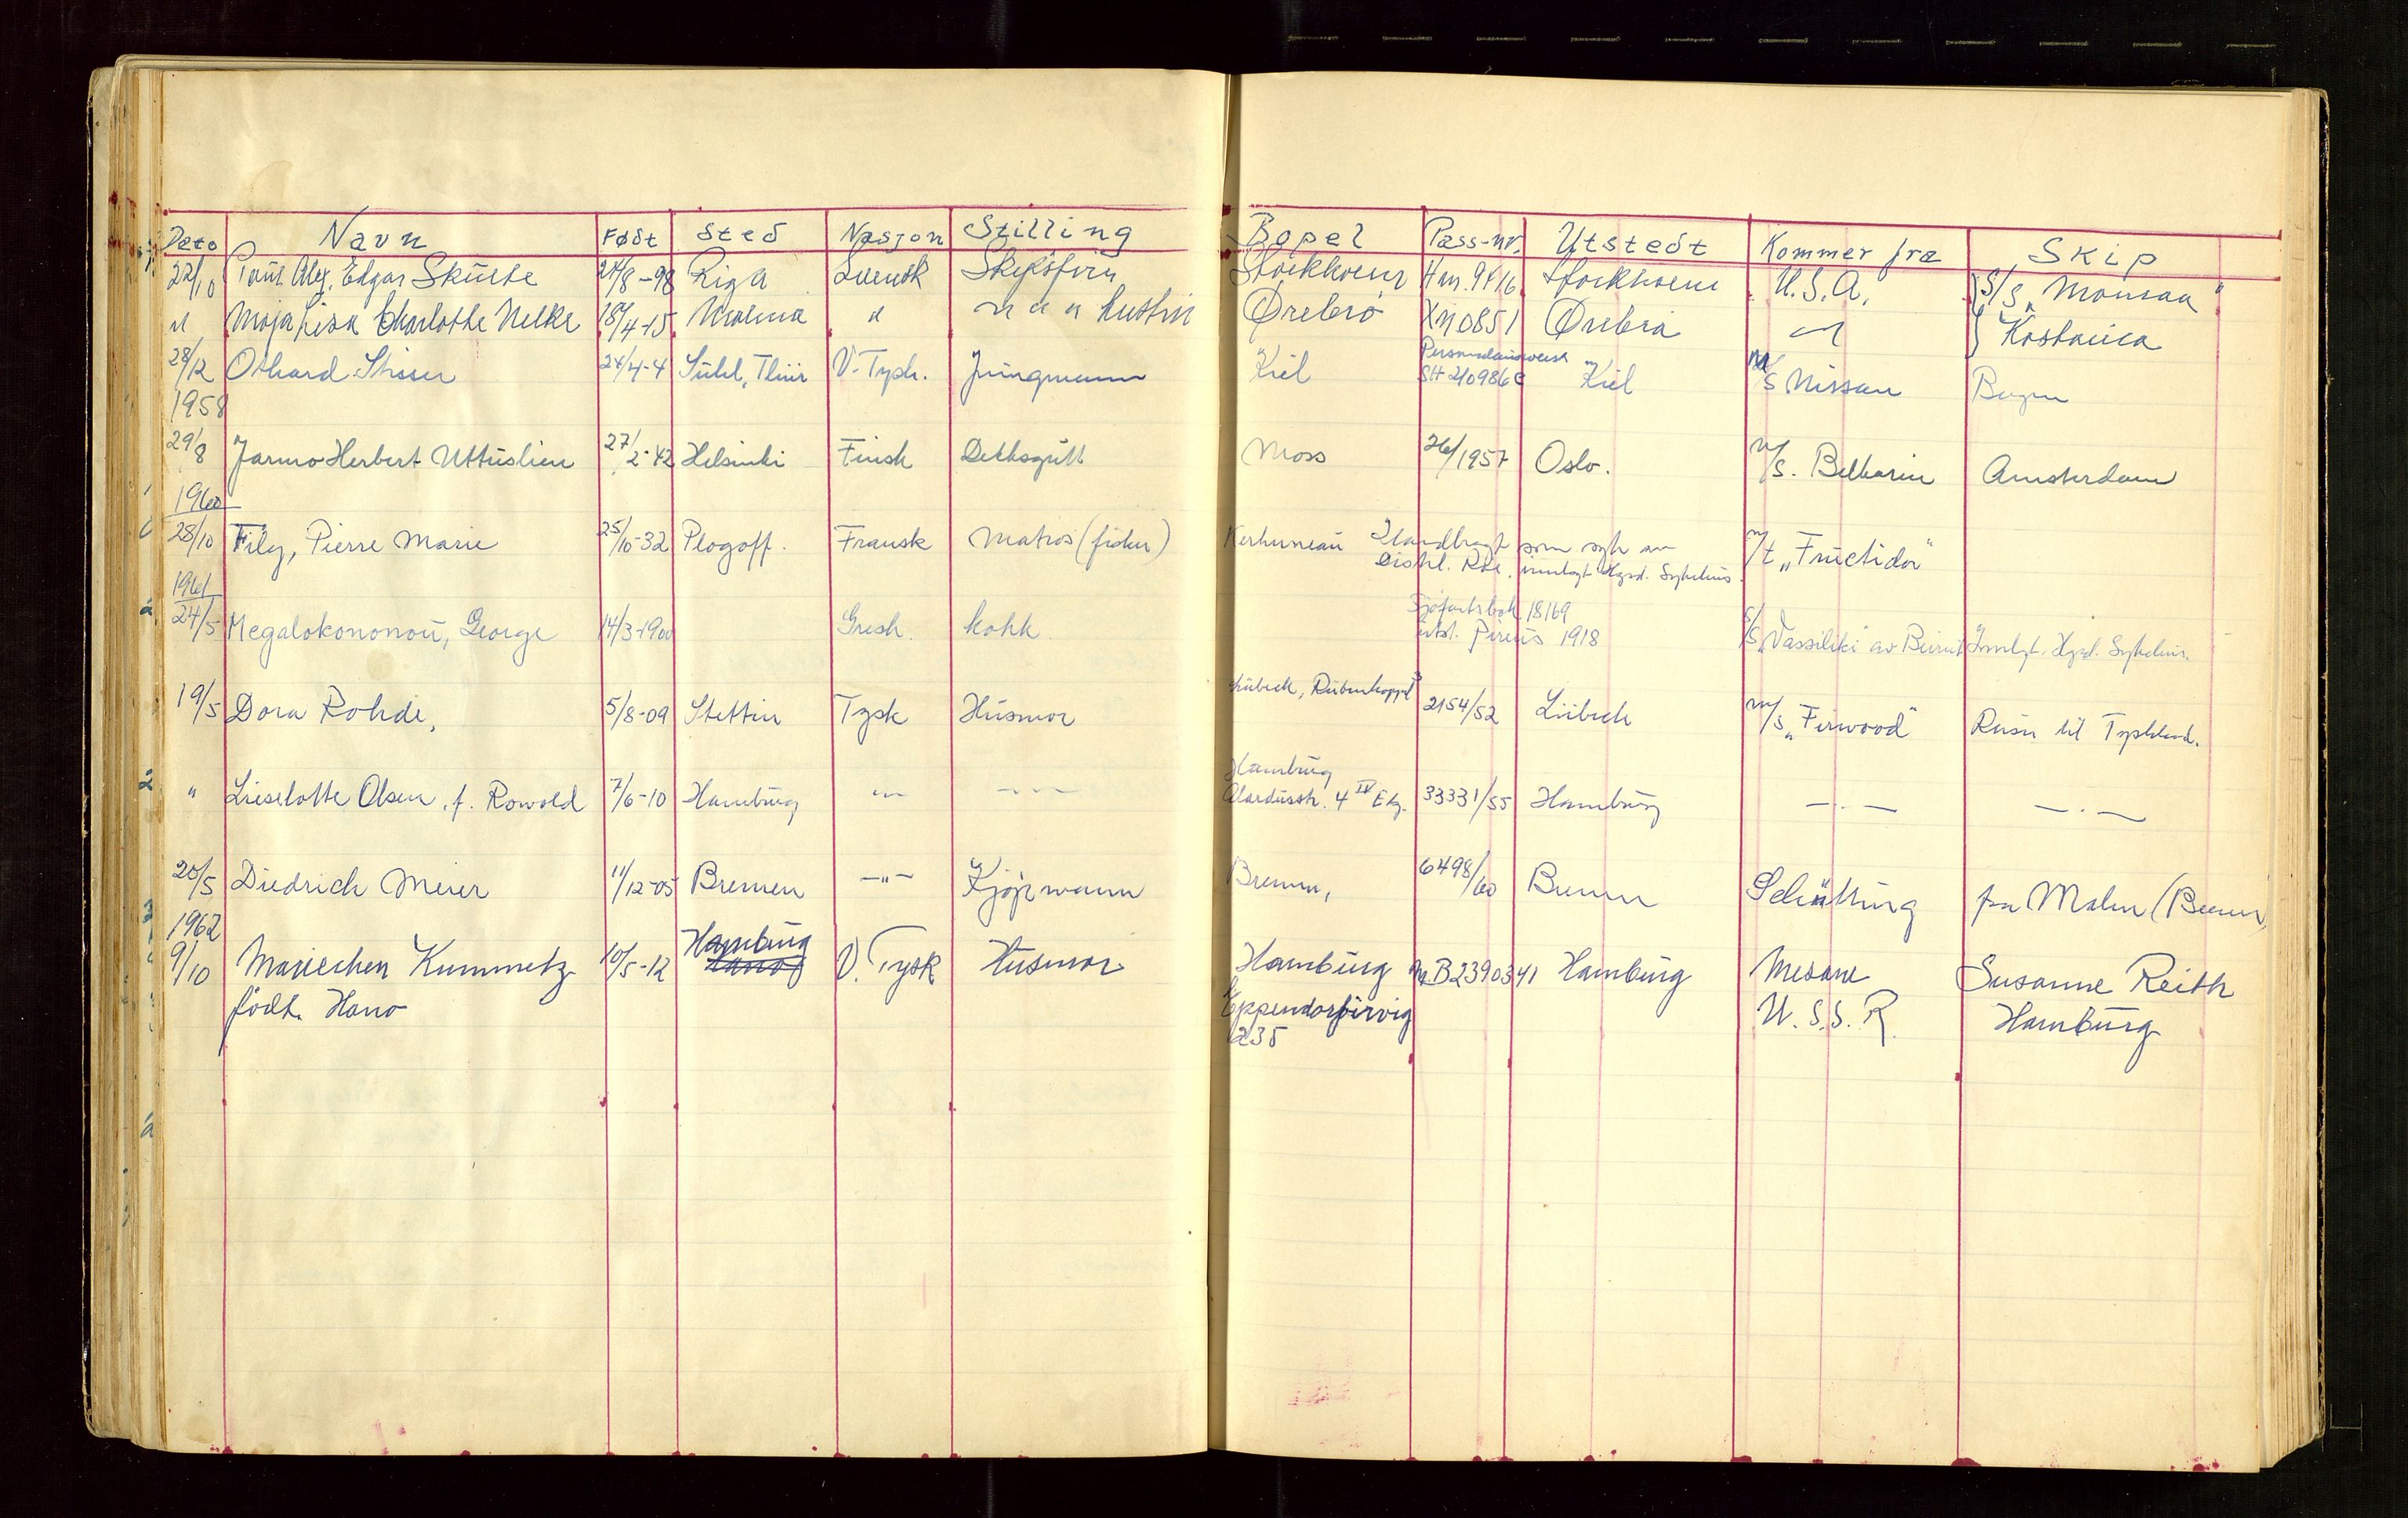 Dato Navn Født Sted Nasjon Stilling Bopel Pass-nr. Utstedt Kommer fra Skip
22/10 Paul Alex. Edgar Skuste 24/8-98 Riga Svensk Stockholm Stockholm U.S.A. S/S „Monsaa"
" Maja Lisa Charlotte Nelke 18/4-15 " " " " hustru Örebro XN0851 Örebro Kostarica
28/12 Othard Stisser 24/4-4 Suhl, Thür V. Tysk. Jungmann Kiel Personalausweis SH 210986 C Kiel M/S Nissan Bergen
1958
29/8 Jarmo Herbert Uttuslien 27/2-42 Helsinki Finsk Dekksgutt Moss 26/1957 Oslo. M/S. Belkarin Amsterdam
1960
28/10 Fily, Pierre Marie 25/10-32 Plogoff. Fransk Matros (fisker) Kerhuneau Ilandbragt som syk av
Distr. Roe, innlagt Hgsd. Sykehus m/t „Fructidor"
1961
24/5 Megalokonomou, George 14/3-1900 Gresk. kokk Sjøfartsbok 18169
utst. Pireus 1918 S/S „Vassiliki" av Beirut Innlagt Hgsd. Sykehus.
19/5 Dora Rohde, 5/8-09 Stettin Tysk Husmor Lübeck, Rübenkoppel 2154/52 Lübeck m/s „Firwood" Reiser til Tyskland.
" Lieselotte Olsen, f. Rowold 7/6-10 Hamburg -"- -"- Hamburg
Alardusstr. 4 IV Etg. 33331/55 Hamburg -"- -"-
20/5 Diedrich Meier 11/12-05 Bremen -"- Kjøpmann Bremen, 6498/60 Bremen Schütting fra Malm (Bremen)
1962
9/10 Mariechen Kummetz 10/5-12 Hamburg V. Tysk Husmor Hamburg Nr. B2390341 Hamburg Mesane Susanne Reith
født. Hano Eppendorferweg U.S.S.R. Hamburg
235